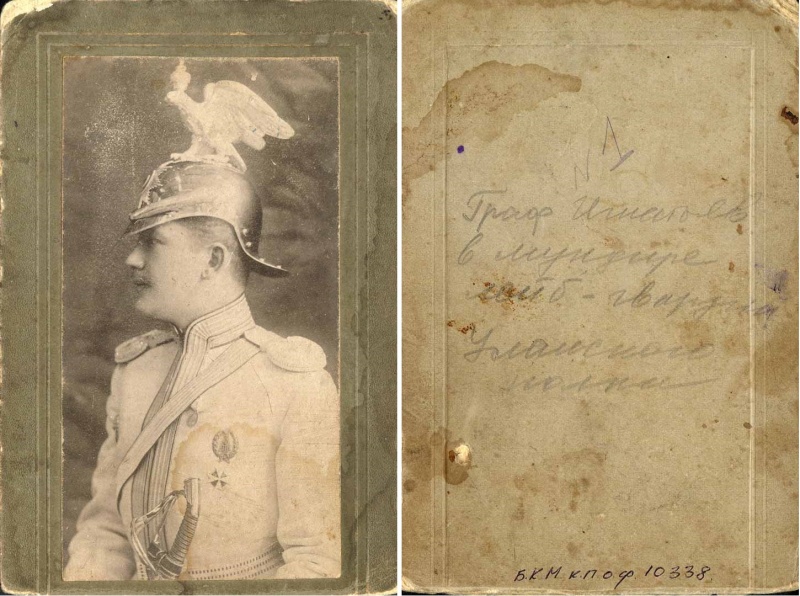 N 1
Граф Игнатьевъ
в мундире
лейб-гвардии
Уланского
полка
Б.К.М. К.П.О.Ф. 10338.